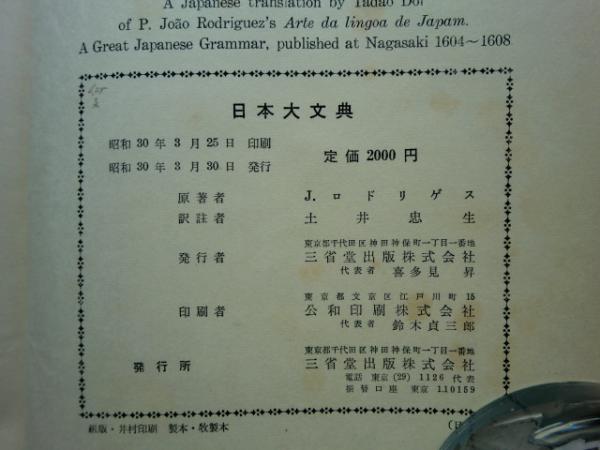 A Japanese translation by Tadao Doi
of P. João Rodriguez's Arte da lingoa de Japam.
A Great Japanese Grammar, published at Nagasaki 1604～1608
日本大文典
昭和 30 年 3 月 25 日 印刷
昭和 30 年 3 月 30 日 発行
定価 2000 円
原著者 J. ロドリゲス
訳註者 土井忠生
東京都千代田区神田神保町一丁目一番地
発行者 三省堂出版株式会社
代表者 喜多見 昇
東京都文京区江戸川町 15
印刷者 公和印刷株式会社
代表者 鈴木貞三郎
東京都千代田区神田神保町一丁目一番地
発行所 三省堂出版株式会社
電話 東京 (29) 1126 代表
振替口座 東京 110159
組版・井村印刷 製本・牧製本